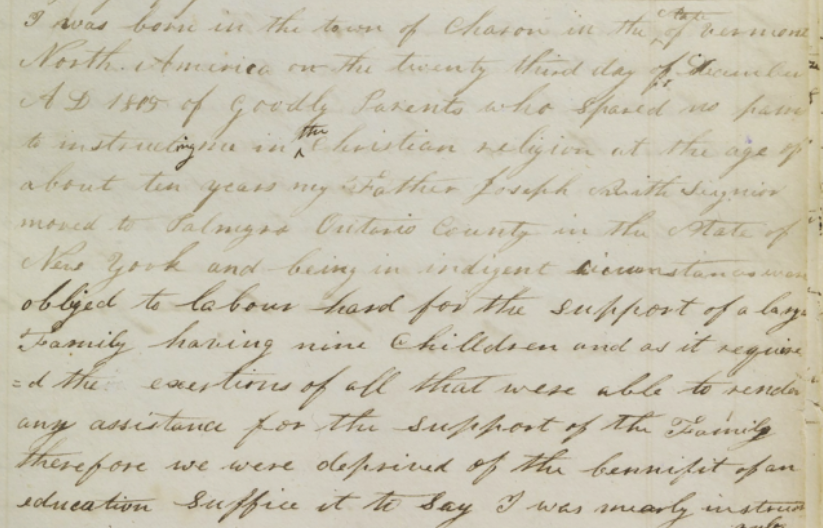 I was born in the town of Charon in the State of Vermont
North America on the twenty third day of December
A D 1805 of goodly Parents who spared no pains
to instructing me in the christian religion at the age of
about ten years my Father Joseph Smith Seignior
moved to Palmyra Ontario County in the State of
New York and being in indigent circumstances were
obliged to labour hard for the support of a large
Family having nine chilldren and as it require
=d the exertions of all that were able to render
any assistance for the support of the Family
therefore we were deprived of the bennifit of an
education suffice it to say I was mearly instruc